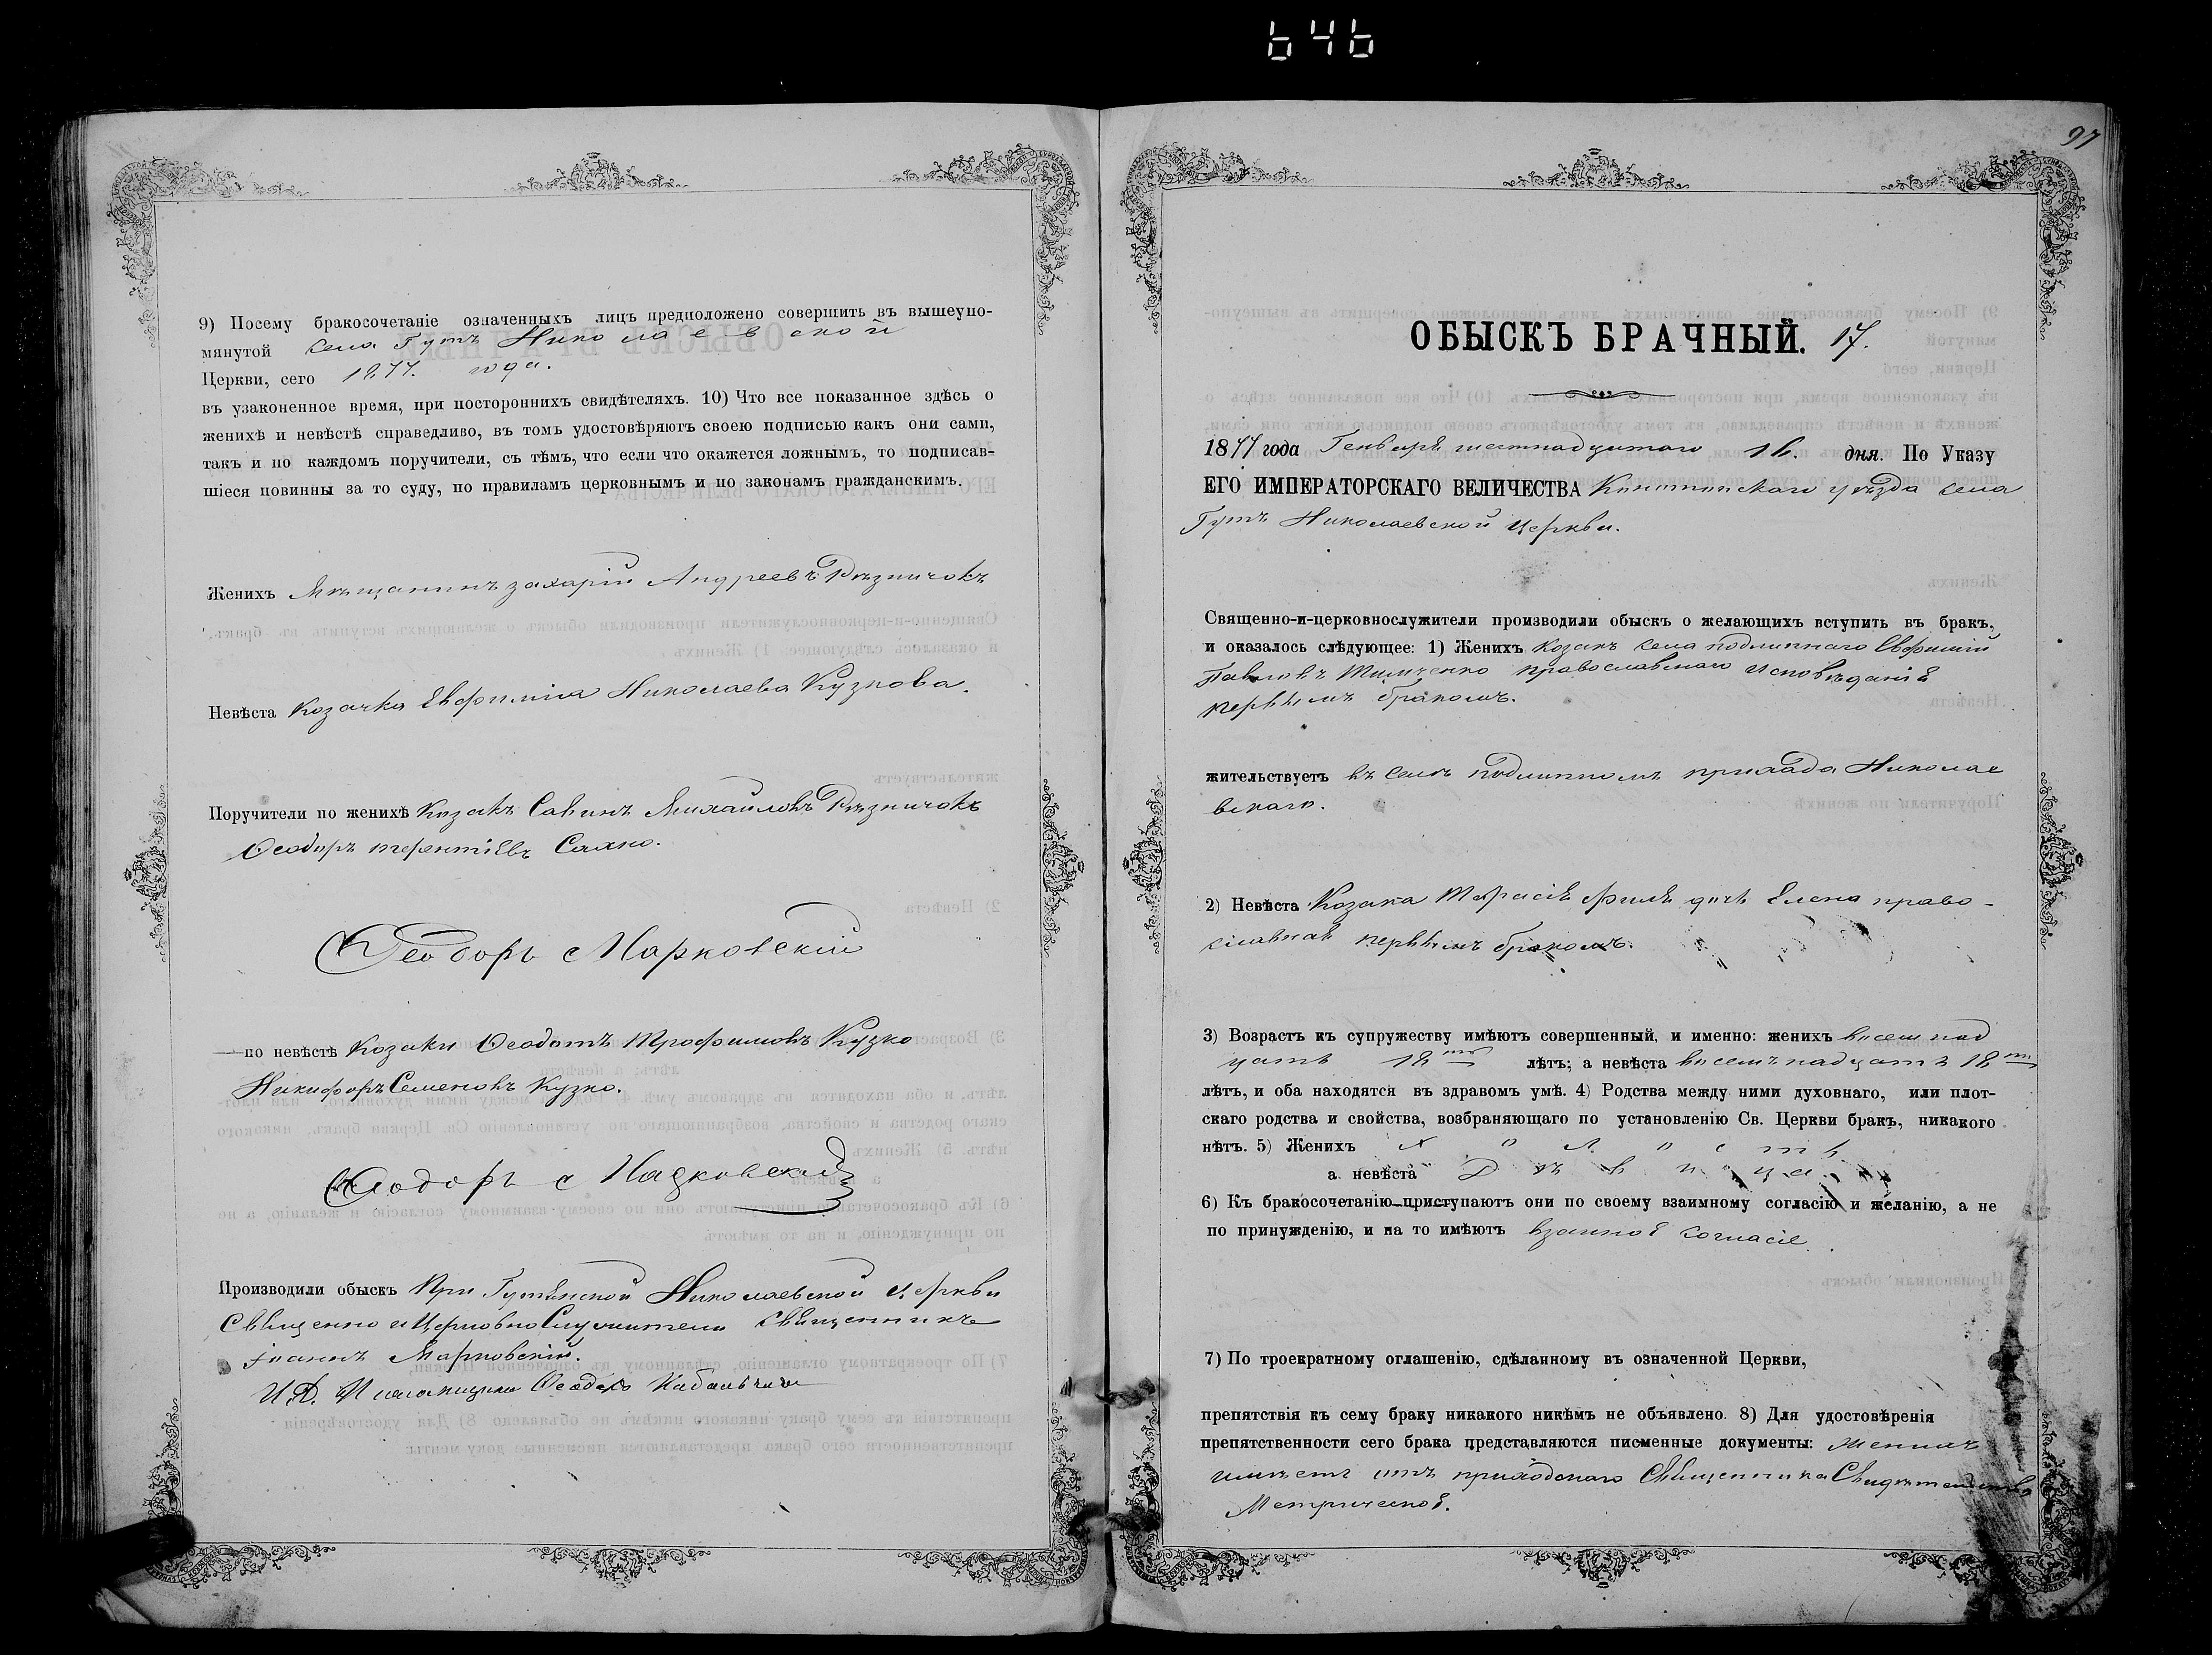 646
9) Посему бракосочетаніе означенныхъ лицъ предположено совершить въ вышеупо-
мянутой села Гутъ Николаевской
Церкви, сего 1877. года.
въ узаконенное время, при постороннихъ свидѣтеляхъ. 10) Что все показанное здѣсь о
женихѣ и невѣстѣ справедливо, въ томъ удостовѣряютъ своею подписью какъ они сами,
такъ и по каждомъ поручители, съ тѣмъ, что если что окажется ложнымъ, то подписав-
шіеся повинны за то суду, по правиламъ церковнымъ и по законамъ гражданскимъ.
Женихъ Мѣщанинъ Захарій Андреевъ Рѣзничокъ
Невѣста Козачка Евфимія Николаева Кузкова.
Поручители по женихѣ Козакъ Савинъ Михайловъ Рѣзничокъ
Ѳеодоръ Терентіевъ Сахно.
Ѳеодоръ Марковскій
—по невѣстѣ Козаки Ѳеодотъ Трофимовъ Кузко
Никифоръ Семеновъ Кузко.
Ѳеодоръ
Производили обыскъ При Гутянской Николаевской церкви
Священно и Церковно Служители Священникъ
Іоаннъ Марковскій.
И. Д. Псаломщика Ѳеодоръ
97
ОБЫСКЪ БРАЧНЫЙ. 17.
1877 года Генваря шестнадцатаго 16. дня. По Указу
ЕГО ИМПЕРАТОРСКАГО ВЕЛИЧЕСТВА Конотопскаго уѣзда села
Гутъ Николаевской церкви.
Священно-и-церковнослужители производили обыскъ о желающихъ вступить въ бракъ,
и оказалось слѣдующее: 1) Женихъ Козакъ села подлипнаго Евфимій
Павловъ Тимченко православнаго исповѣданія
первымъ бракомъ.
жительствуетъ въ селѣ подлипномъ прихода Николае
вскаго.
2) Невѣста Козака Тарасія дочь Елена право-
славная первымъ бракомъ.
3) Возрастъ къ супружеству имѣютъ совершенный, и именно: женихъ восемнад
цать 18ть лѣтъ; а невѣста восемънадцать 18ть
лѣтъ, и оба находятся въ здравомъ умѣ. 4) Родства между ними духовнаго, или плот-
скаго родства и свойства, возбраняющаго по установленію Св. Церкви бракъ, никакого
нѣтъ. 5) Женихъ Холость
а невѣста Дѣвица.
6) Къ бракосочетанію приступаютъ они по своему взаимному согласію и желанію, а не
по принужденію, и на то имѣютъ взаимное согласіе.
7) По троекратному оглашенію, сдѣланному въ означенной Церкви,
препятствія къ сему браку никакого никѣмъ не объявлено. 8) Для удостовѣренія
препятственности сего брака представляются писменные документы: женихъ
имѣетъ отъ приходскаго Священника Свидѣтельство
Метрическое.